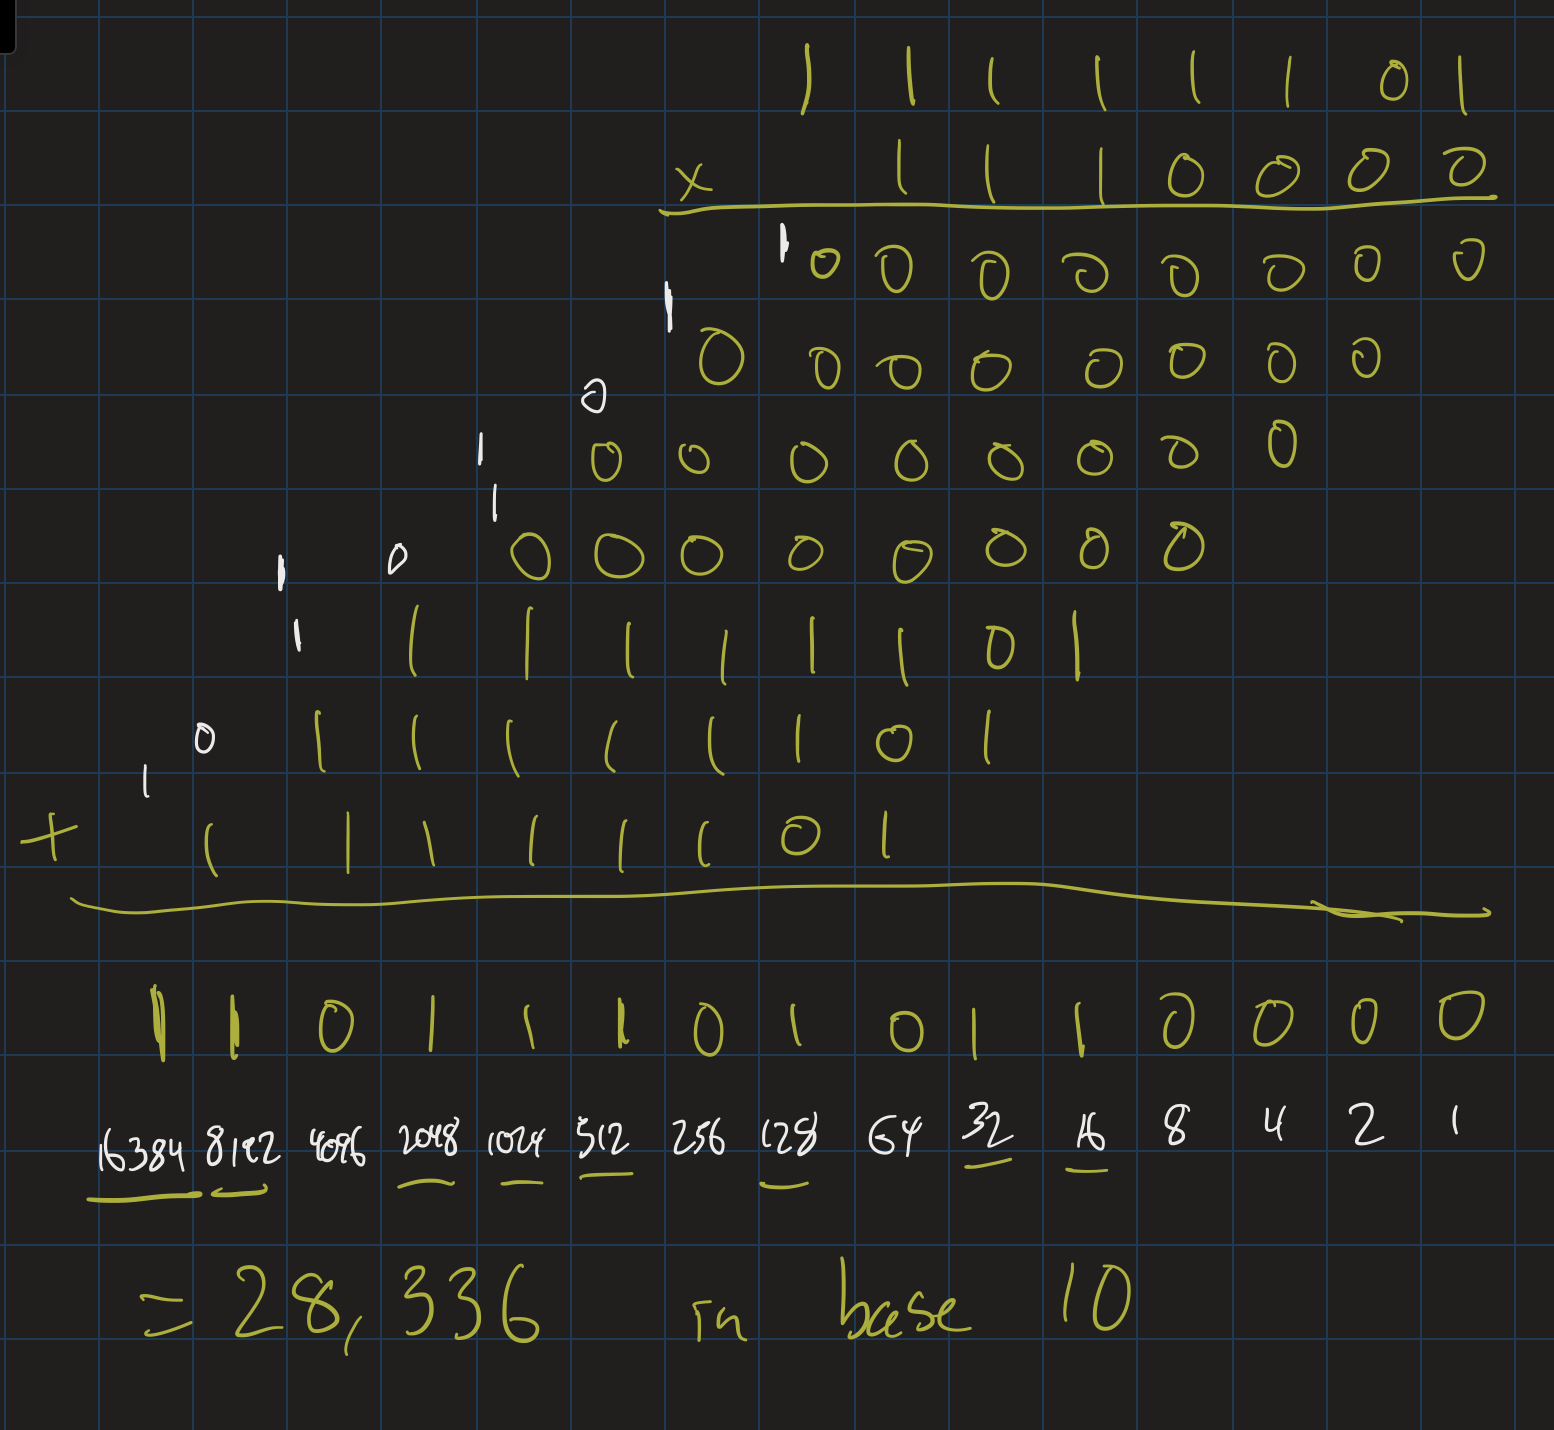 1 1 1 1 1 1 0 1
x 1 1 1 0 0 0 0
1 0 0 0 0 0 0 0 0
1
0 0 0 0 0 0 0 0
0
1 0 0 0 0 0 0 0 0
1
1 0 0 0 0 0 0 0 0 0
1 1 1 1 1 1 1 0 1
0 1 1 1 1 1 1 0 1
1
+ 1 1 1 1 1 1 0 1
1 1 0 1 1 1 0 1 0 1 1 0 0 0 0
16384 8192 4096 2048 1024 512 256 128 64 32 16 8 4 2 1
= 28,336 in base 10